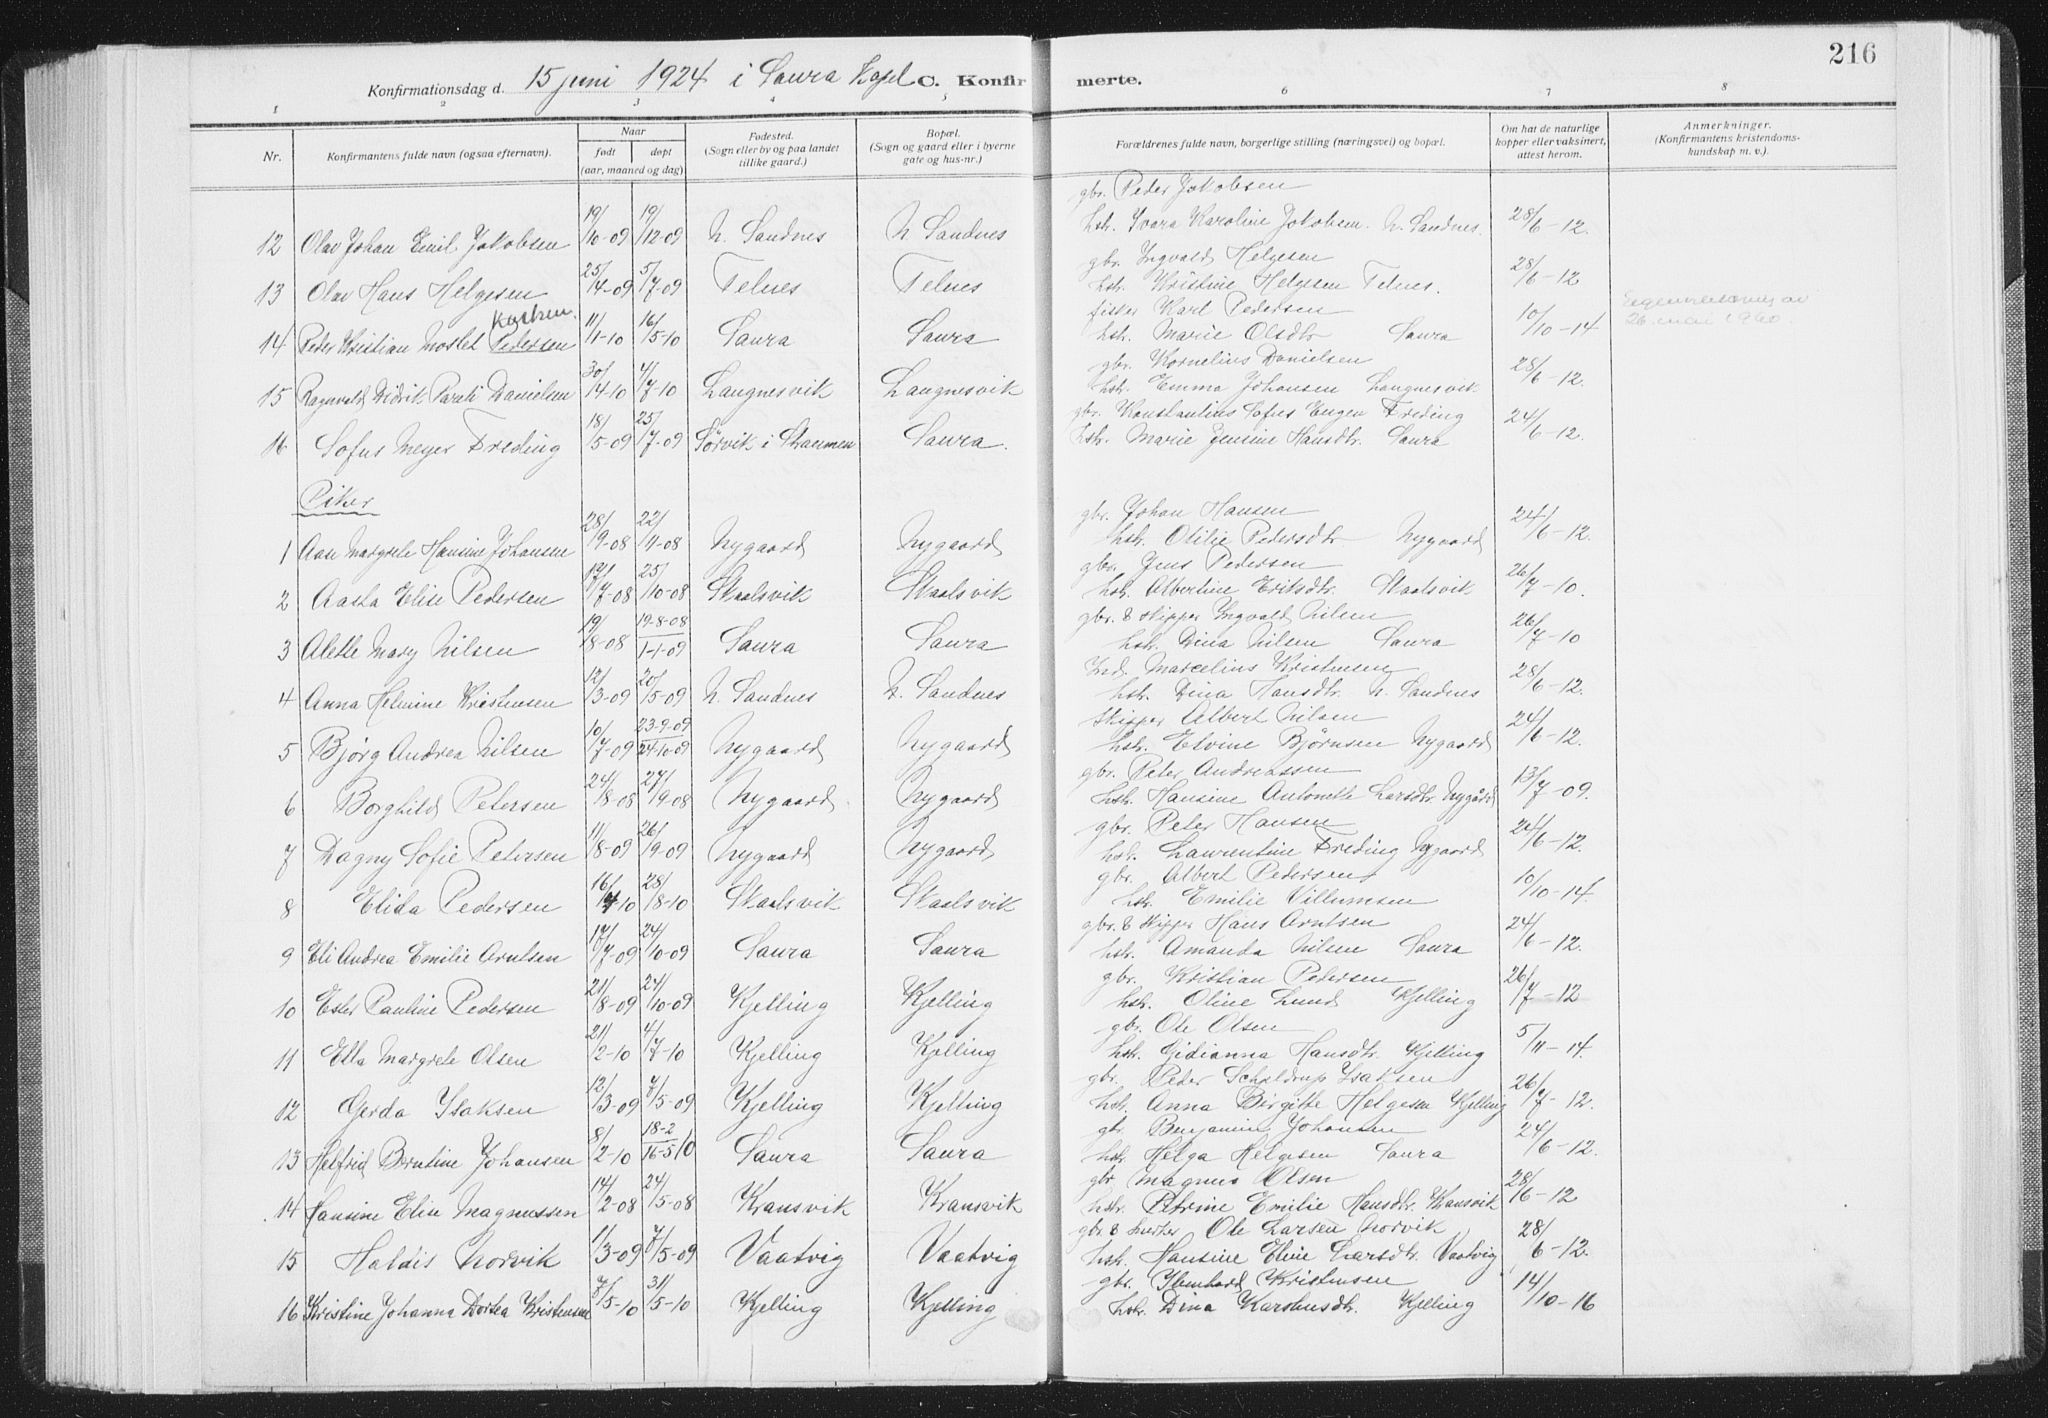 216
Konfirmationsdag d. 15 juni 1924 i Saura Kapel C. Konfirmerte.
1 2 3 4 5 6 7 8
Nr. Konfirmantens fulde navn (ogsaa efternavn). Naar født døpt (aar, maaned og dag) Fødested. (Sogn eller by og paa landet tillike gaard.) Bopæl. (Sogn og gaard eller i byerne gate og hus-nr.) Forældrenes fulde navn, borgerlige stilling (næringsvei) og bopæl. Om hat de naturlige kopper eller vaksinert, attest herom. Anmerkninger. (Konfirmantens kristendomskundskap m. v.).
gbr. Peder Jakobsen
12 Olav Johan Emil Jakobsen 19/10-09 19/12-09 N. Sandnes N. Sandnes hstr. Karoline Jakobsen. N. Sandnes. 28/6-12.
gbr. Ingvald Helgesen
13 Olav Hans Helgesen 25/4-09 5/7-09 Telnes Telnes hstr. Kristine Helgesen Telnes. 28/6-12
fisker Karl Pedersen
14 Peder Kristian Moslet Pedersen 11/1-10 16/5-10 Saura Saura hstr. Marie Olsdtr Saura 10/10-14 26. mai 1960.
gbr. Kornelius Danielsen
15 Ragnvald Didrik Danielsen 30/4-10 4/7-10 Langnesvik Langnesvik hstr. Emma Johansen Langnesvik 28/6-12.
gbr. Konstantius Sofus Eugen Freding
16 Sofus Meyer Freding 18/5-09 25/7-09 Sörvik i Straumen Saura. hstr. Marie Jensine Hansdtr. Saura 24/6-12.
Piker
gbr. Johan Hansen
1 Margrete Hansine Johansen 28/9-08 22/11-08 Nygaard Nygaard hstr. Otilie Pedersdtr Nygaard 24/6-12.
gbr. Jens Pedersen
2 Aasta Elise Pedersen 17/7-08 25/10-08 Skaalsvik Skaalsvik hstr. Albertine Eriksdtr. Skaalsvik 26/7-10.
gbr. & skipper Ingvald Nilsen
3 Alette Mary Nilsen 19/8-08 19-8-08 1-1-09 Saura Saura hstr. Dina Nilsen Saura 26/7-10
Ind. Marcelius Kristensen
4 Anna Helmine Kristensen 12/3-09 20/5-09 N. Sandnes N. Sandnes hstr. Dina Hansdtr. N. Sandnes 28/6-12.
skipper Albert Nilsen
5 Bjørg Andrea Nilsen 10/7-09 23-9-09 24-10-09 Nygaard Nygaard hstr. Elvine Bjørnsen Nygaard 24/6-12.
gbr. Peter Andreassen
6 Borghild Petersen 24/8-08 27/9-08 Nygaard Nygaard hstr. Hansine Antonette Larsdtr. Nygård 13/7-09.
gbr. Peter Hansen
7 Dagny Sofie Petersen 11/8-09 26/9-09 Nygaard Nygaard hstr. Laurentine Freding Nygaard 24/6-12.
gbr. Albert Pedersen
8 Elida Pedersen 16/7-10 28/8-10 Skaalsvik Skaalsvik hstr. Emilie Villumsen 10/10-14.
gbr. & skipper Hans Arntsen
9 Eli Andrea Emilie Arntsen 17/7-09 24/10-09 Saura Saura hstr. Amanda Nilsen Saura 24/6-12.
gbr. Kristian Pedersen
10 Ester Pauline Pedersen 21/8-09 24/10-09 Kjelling Kjelling hstr. Oline Lund Kjelling 26/7-12
gbr. Ole Olsen
11 Ella Margrete Olsen 21/2-10 4/7-10 Kjelling Kjelling hstr. Gidianna Hansdtr. Kjelling 5/11-14.
gbr. Peder Schjeldrup Isaksen
12 Gerda Isaksen 12/3-09 7/5-09 Kjelling Kjelling hstr. Anna Birgitte Helgesen Kjelling 26/7-12.
gbr. Benjamin Johansen
13 Helfrid Berntine Johansen 8/2-10 18-2 16-5/10 Saura Saura hstr. Helga Helgesen Saura 24/6-12.
gbr Magnus Olsen
14 Hansine Elise Magnussen 14/2-08 24/5-08 Kransvik Kransvik hstr. Petrine Emilie Hansdtr. Kransvik 28/6-12
gbr. & Ole Larsen Norvik
15 Haldis Norvik 1/3-09 7/5-09 Vaatvig Vaatvig hstr. Hansine Elvie Larsdtr. Vaatvig 28/6-12.
gbr. Kristensen
16 Kristine Johanna Dortea Kristensen 7/5-10 31/5-10 Kjelling Kjelling hstr. Dina Karstensdtr. Kjelling 14/10-16